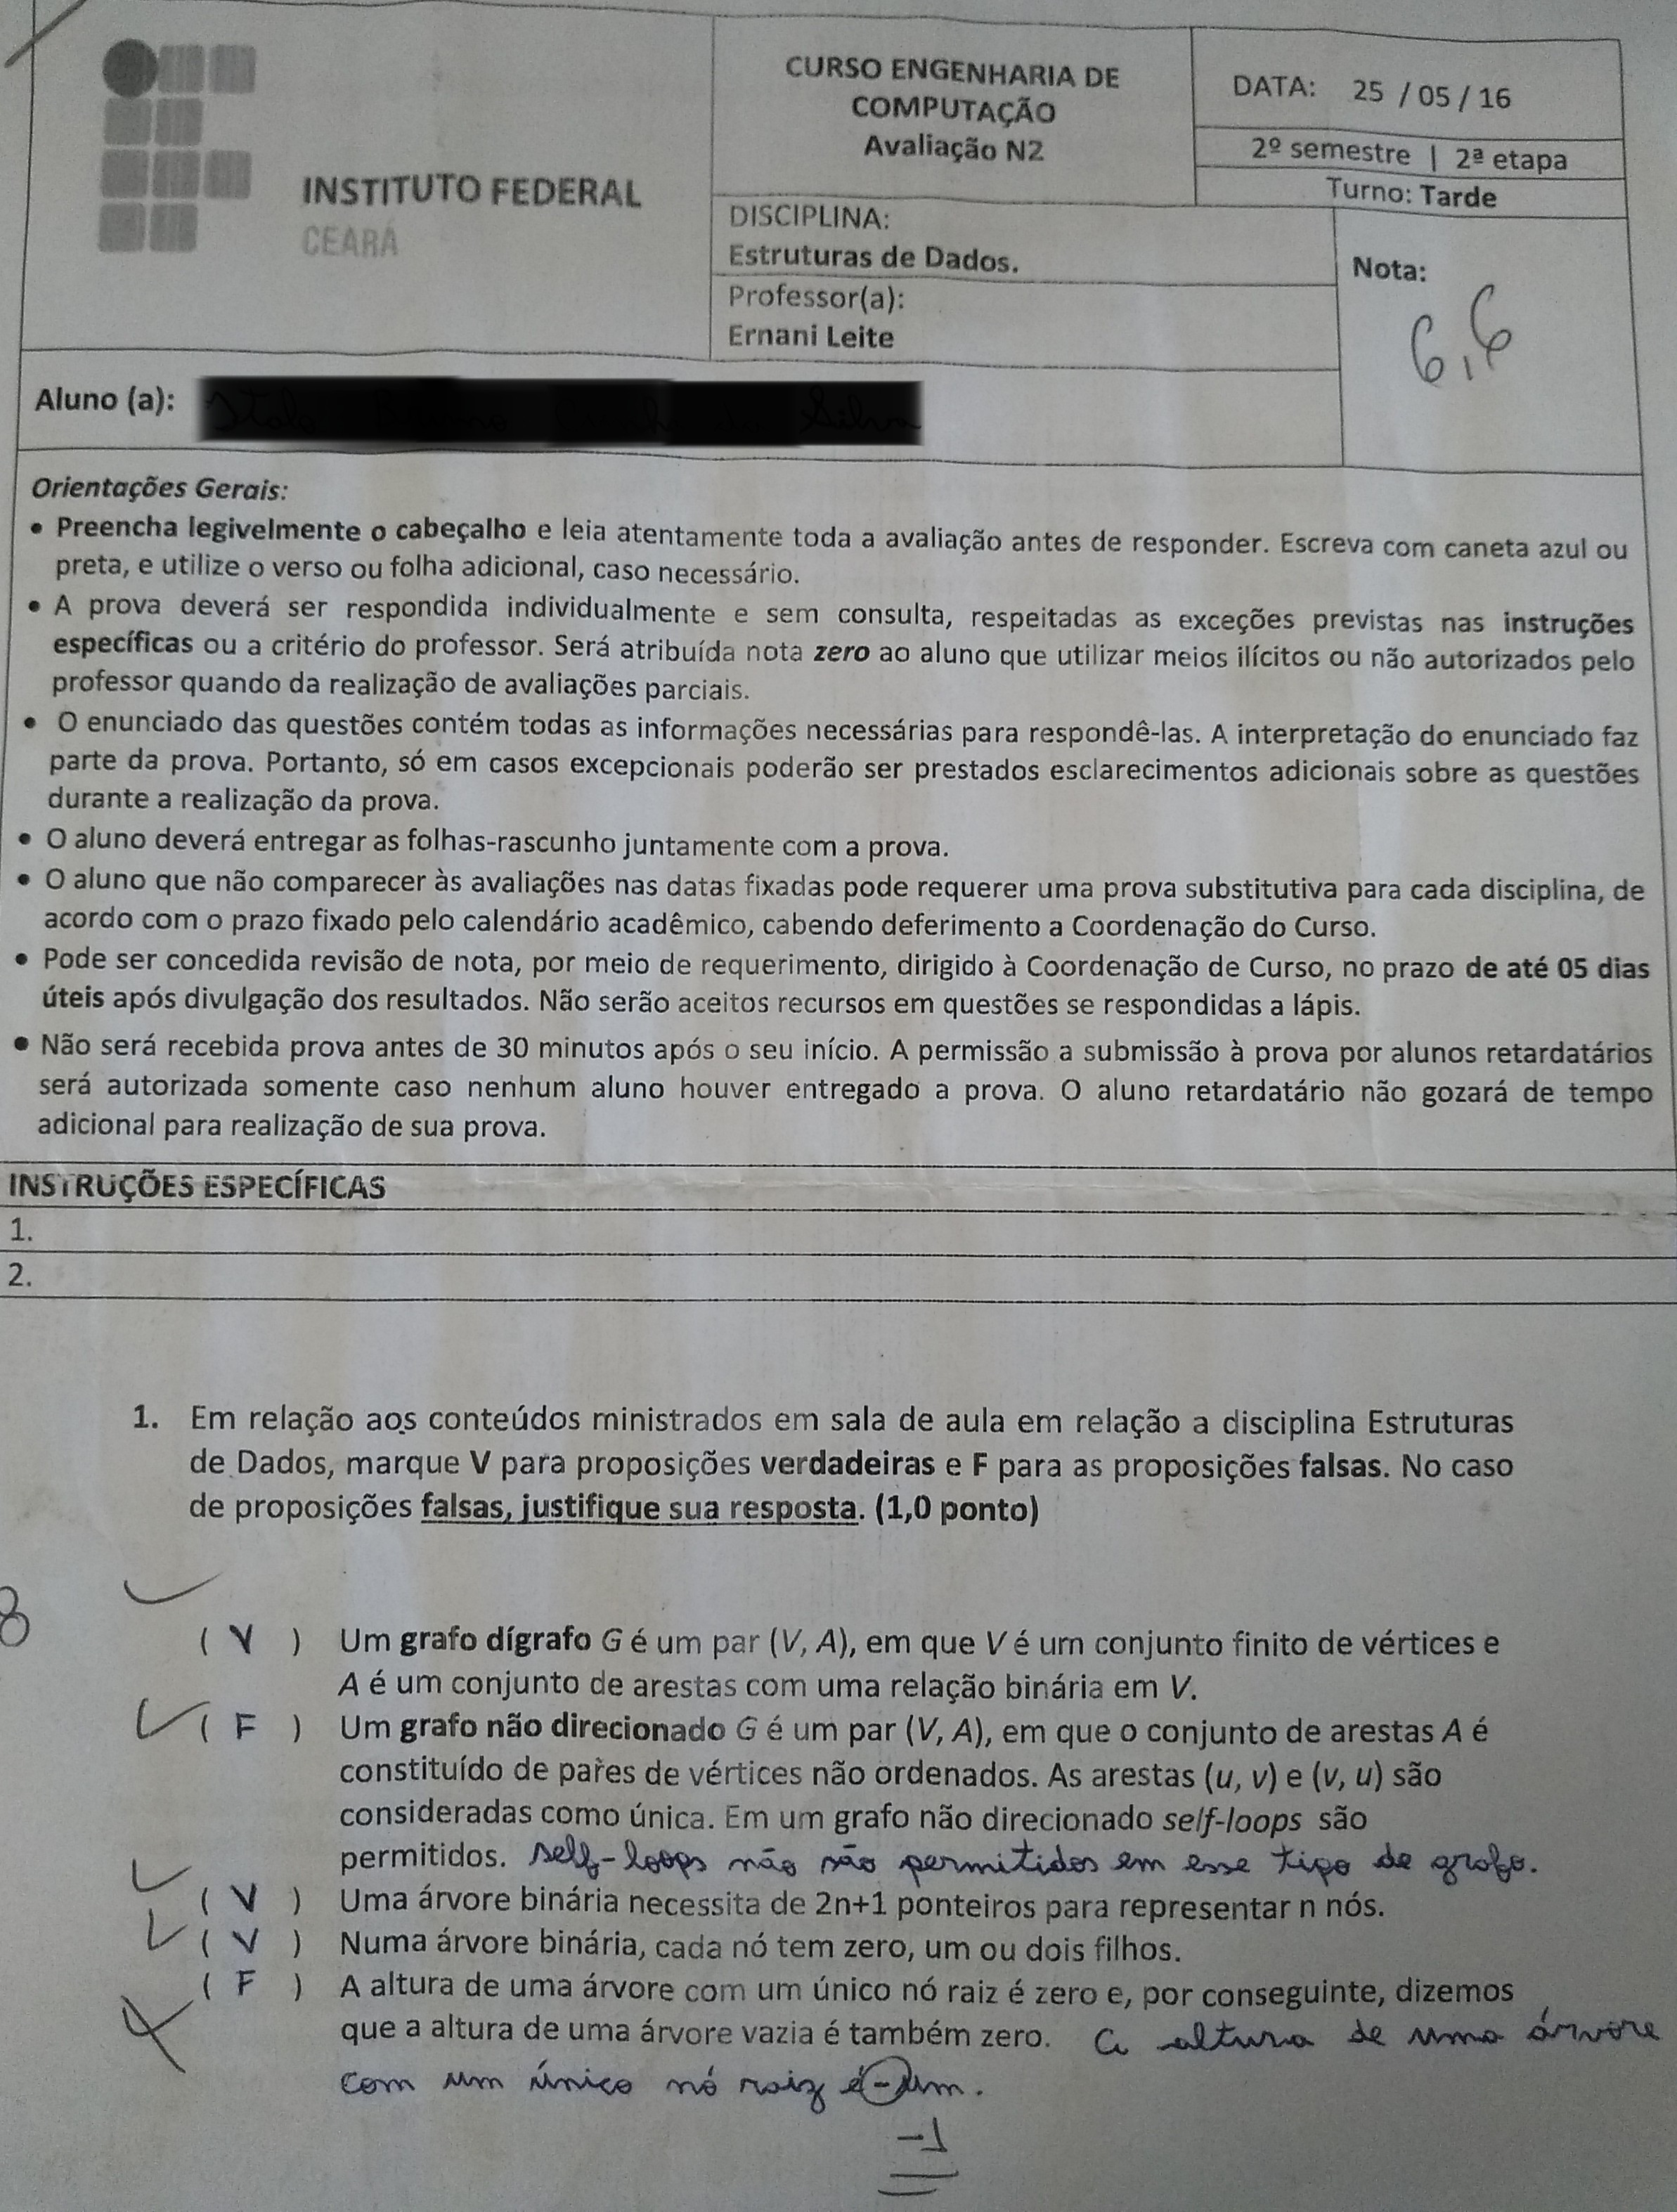 CURSO ENGENHARIA DE
COMPUTAÇÃO
Avaliação N2
DATA: 25 / 05 / 16
2º semestre | 2ª etapa
Turno: Tarde
INSTITUTO FEDERAL
CEARÁ
DISCIPLINA:
Estruturas de Dados.
Professor(a):
Ernani Leite
Nota:
6,6
Aluno (a):
Orientações Gerais:
• Preencha legivelmente o cabeçalho e leia atentamente toda a avaliação antes de responder. Escreva com caneta azul ou
preta, e utilize o verso ou folha adicional, caso necessário.
• A prova deverá ser respondida individualmente e sem consulta, respeitadas as exceções previstas nas instruções
específicas ou a critério do professor. Será atribuída nota zero ao aluno que utilizar meios ilícitos ou não autorizados pelo
professor quando da realização de avaliações parciais.
• O enunciado das questões contém todas as informações necessárias para respondê-las. A interpretação do enunciado faz
parte da prova. Portanto, só em casos excepcionais poderão ser prestados esclarecimentos adicionais sobre as questões
durante a realização da prova.
• O aluno deverá entregar as folhas-rascunho juntamente com a prova.
• O aluno que não comparecer às avaliações nas datas fixadas pode requerer uma prova substitutiva para cada disciplina, de
acordo com o prazo fixado pelo calendário acadêmico, cabendo deferimento a Coordenação do Curso.
• Pode ser concedida revisão de nota, por meio de requerimento, dirigido à Coordenação de Curso, no prazo de até 05 dias
úteis após divulgação dos resultados. Não serão aceitos recursos em questões se respondidas a lápis.
• Não será recebida prova antes de 30 minutos após o seu início. A permissão a submissão à prova por alunos retardatários
será autorizada somente caso nenhum aluno houver entregado a prova. O aluno retardatário não gozará de tempo
adicional para realização de sua prova.
INSTRUÇÕES ESPECÍFICAS
1.
2.
1. Em relação aos conteúdos ministrados em sala de aula em relação a disciplina Estruturas
de Dados, marque V para proposições verdadeiras e F para as proposições falsas. No caso
de proposições falsas, justifique sua resposta. (1,0 ponto)
8
( V ) Um grafo dígrafo G é um par (V, A), em que V é um conjunto finito de vértices e
A é um conjunto de arestas com uma relação binária em V.
( F ) Um grafo não direcionado G é um par (V, A), em que o conjunto de arestas A é
constituído de pares de vértices não ordenados. As arestas (u, v) e (v, u) são
consideradas como única. Em um grafo não direcionado self-loops são
permitidos. Self-loops não são permitidos em esse tipo de grafo.
( V ) Uma árvore binária necessita de 2n+1 ponteiros para representar n nós.
( V ) Numa árvore binária, cada nó tem zero, um ou dois filhos.
( F ) A altura de uma árvore com um único nó raiz é zero e, por conseguinte, dizemos
que a altura de uma árvore vazia é também zero. A altura de uma árvore
com um único nó raiz é -um.
-1